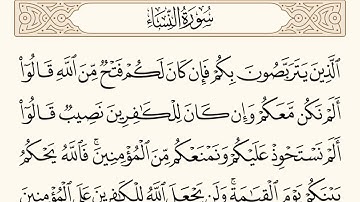 سُورَةُ النِّسَاءِ
الَّذِينَ يَتَرَبَّصُونَ بِكُمْ فَإِن كَانَ لَكُمْ فَتْحٌ مِّنَ اللَّهِ قَالُوٓا۟
أَلَمْ نَكُن مَّعَكُمْ وَإِن كَانَ لِلْكَٰفِرِينَ نَصِيبٌ قَالُوٓا۟
أَلَمْ نَسْتَحْوِذْ عَلَيْكُمْ وَنَمْنَعْكُم مِّنَ الْمُؤْمِنِينَ ۚ فَاللَّهُ يَحْكُمُ
بَيْنَكُمْ يَوْمَ الْقِيَٰمَةِ ۗ وَلَن يَجْعَلَ اللَّهُ لِلْكَٰفِرِينَ عَلَى الْمُؤْمِنِينَ